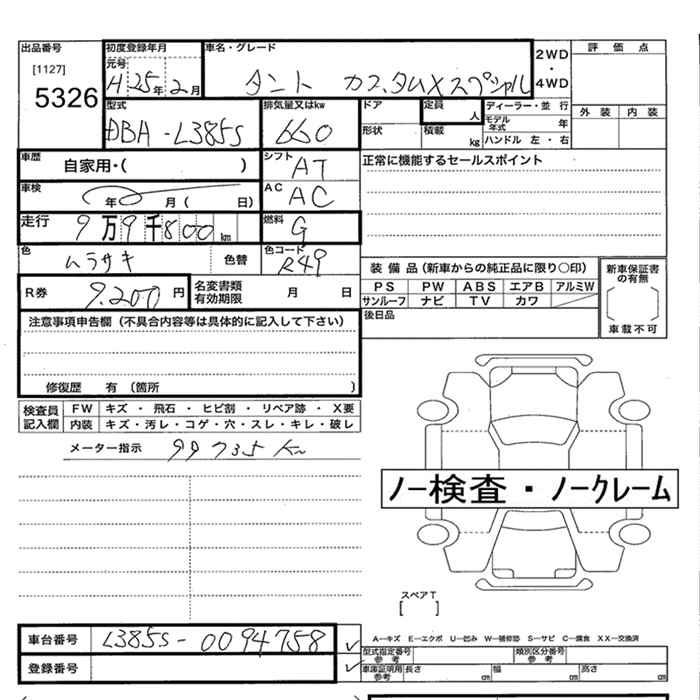 出品番号 初度登録年月 車名・グレード 2WD・4WD 評価点
[1127] 元号
5326 H 25年 2月 タント カスタムXスペシャル
型式 排気量又はkw ドア 定員 人 ディーラー・並行 外装 内装
DBA-L385S 660 形状 積載 kg モデル年式 年 ハンドル 左・右
車歴 自家用・( ) シフト AT 正常に機能するセールスポイント
車検 年 月( 日) AC AC
走行 9万9千800km 燃料 G
色 ムラサキ 色替 色コード R49 装備品(新車からの純正品に限り○印) 新車保証書の有無
R券 9.200円 名変書類有効期限 月 日 PS PW ABS エアB アルミW
サンルーフ ナビ TV カワ
注意事項申告欄(不具合内容等は具体的に記入して下さい) 後日品 車載不可
修復歴 有(箇所 )
検査員記入欄 FW キズ・飛石・ヒビ割・リペア跡・X要
内装 キズ・汚レ・コゲ・穴・スレ・キレ・破レ
メーター指示 99735Km
ノー検査・ノークレーム
スペアT
[ ]
車台番号 L385S-0094758 A-キズ E-エクボ U-凹み W-補修跡 S-サビ C-腐食 XX-交換済
型式指定番号 参考 類別区分番号 参考
登録番号 車庫証明用 参考 長さ cm 幅 cm 高さ cm